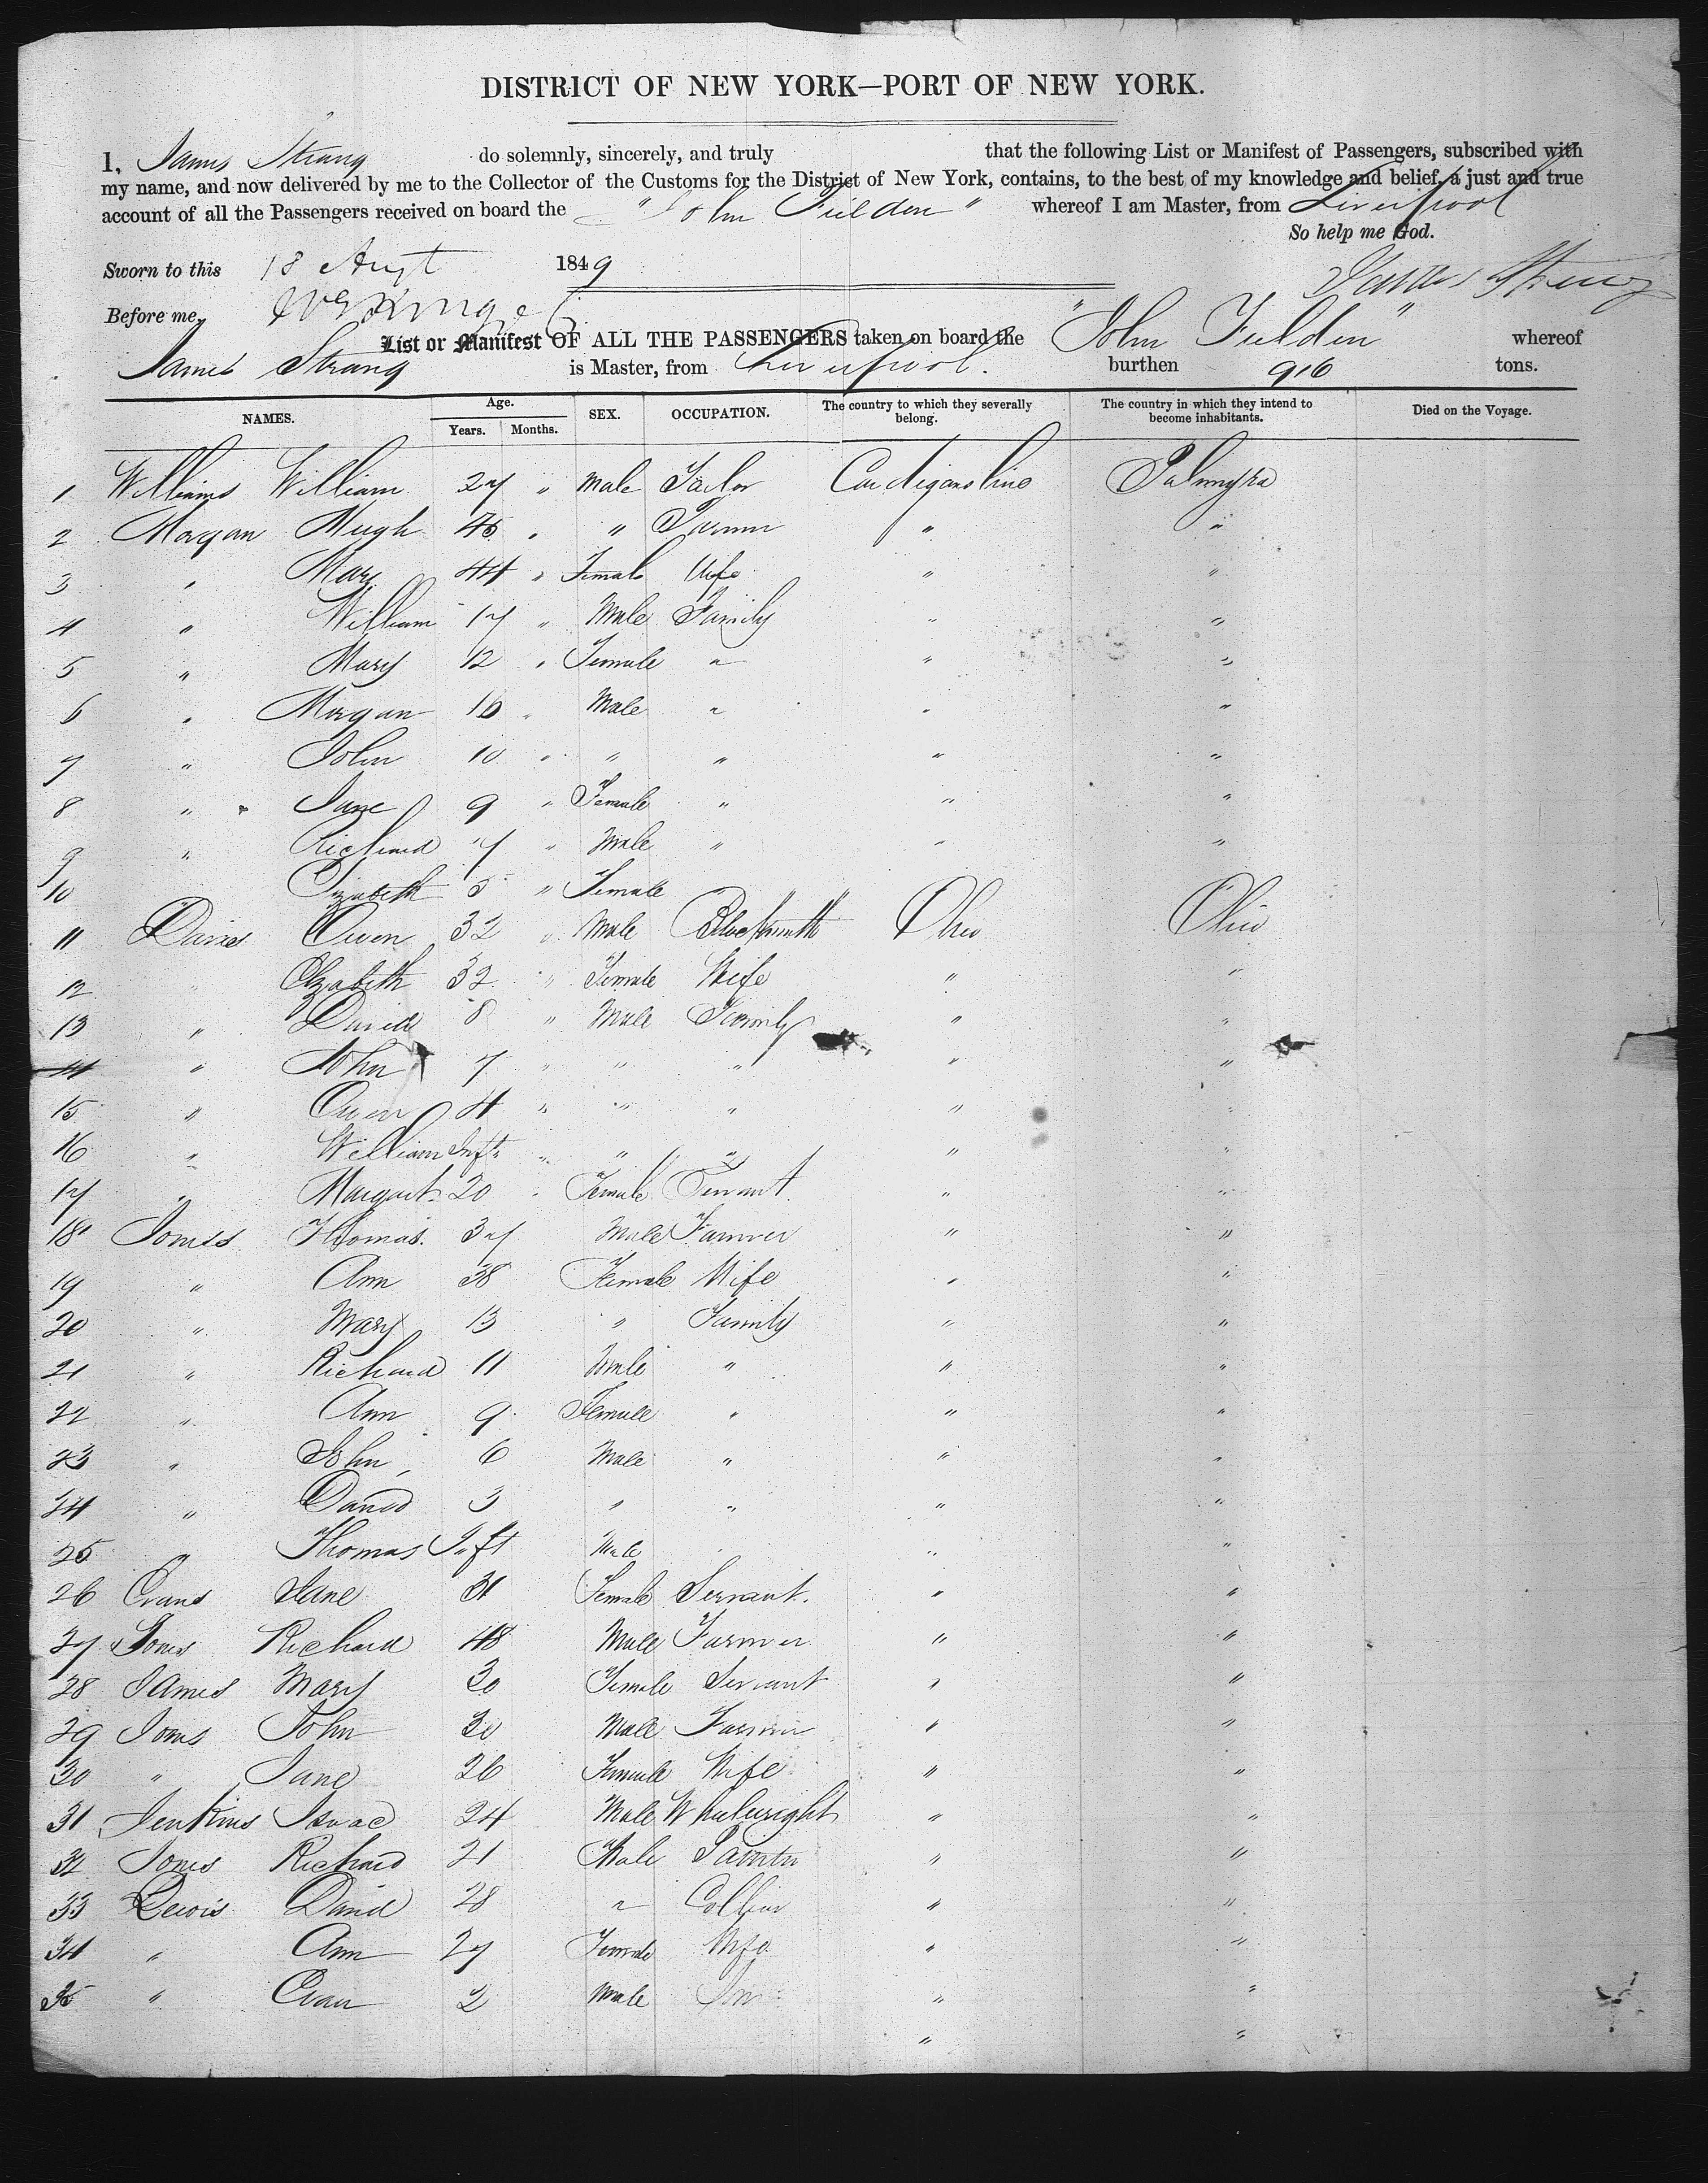 DISTRICT OF NEW YORK—PORT OF NEW YORK.
I, James Strang do solemnly, sincerely, and truly that the following List or Manifest of Passengers, subscribed with
my name, and now delivered by me to the Collector of the Customs for the District of New York, contains, to the best of my knowledge and belief, a just and true
account of all the Passengers received on board the "John Fielden" whereof I am Master, from Liverpool
So help me God.
Sworn to this 18 Augt 1849
James Strang
Before me,
List or Manifest OF ALL THE PASSENGERS taken on board the "John Fielden" whereof
James Strang is Master, from Liverpool. burthen 916 tons.
NAMES. Age. Years. Months. SEX. OCCUPATION. The country to which they severally belong. The country in which they intend to become inhabitants. Died on the Voyage.
1 Williams William 27 " Male Tailor Cardiganshire Palmyra
2 Morgan Hugh 45 " " Farmer " "
3 " Mary 44 " Female Wife " "
4 " William 17 " Male Family " "
5 " Mary 12 " Female " " "
6 " Morgan 16 " Male " " "
7 " John 10 " " " " "
8 " Jane 9 " Female " " "
9 " Richard 7 " Male " " "
10 Elizabeth 5 " Female
11 Davies Owen 32 " Male Blacksmith Ohio Ohio
12 " Elizabeth 32 " Female Wife " "
13 " David 8 " Male Family " "
14 " John 7 " " " " "
15 " Owen 4 " " " " "
16 " William Inft " " " " "
17 " Margaret 20 " Female Servant " "
18 Jones Thomas. 37 Male Farmer " "
19 " Ann 38 Female Wife " "
20 " Mary 13 " Family " "
21 " Richard 11 Male " " "
22 " Ann 9 Female " " "
23 " John 6 Male " " "
24 " David 3 " " " "
25 " Thomas Inft Male " " "
26 Evans Jane 31 Female Servant. " "
27 Jones Richard 48 Male Farmer " "
28 James Mary 30 Female Servant " "
29 Jones John 30 Male Farmer " "
30 " Jane 26 Female Wife " "
31 Jenkins Isaac 24 Male Wheelwright " "
32 Jones Richard 21 Male Painter " "
33 Lewis David 28 " Collier " "
34 " Ann 27 Female Wife " "
35 " Evan 2 Male Son " "
" "